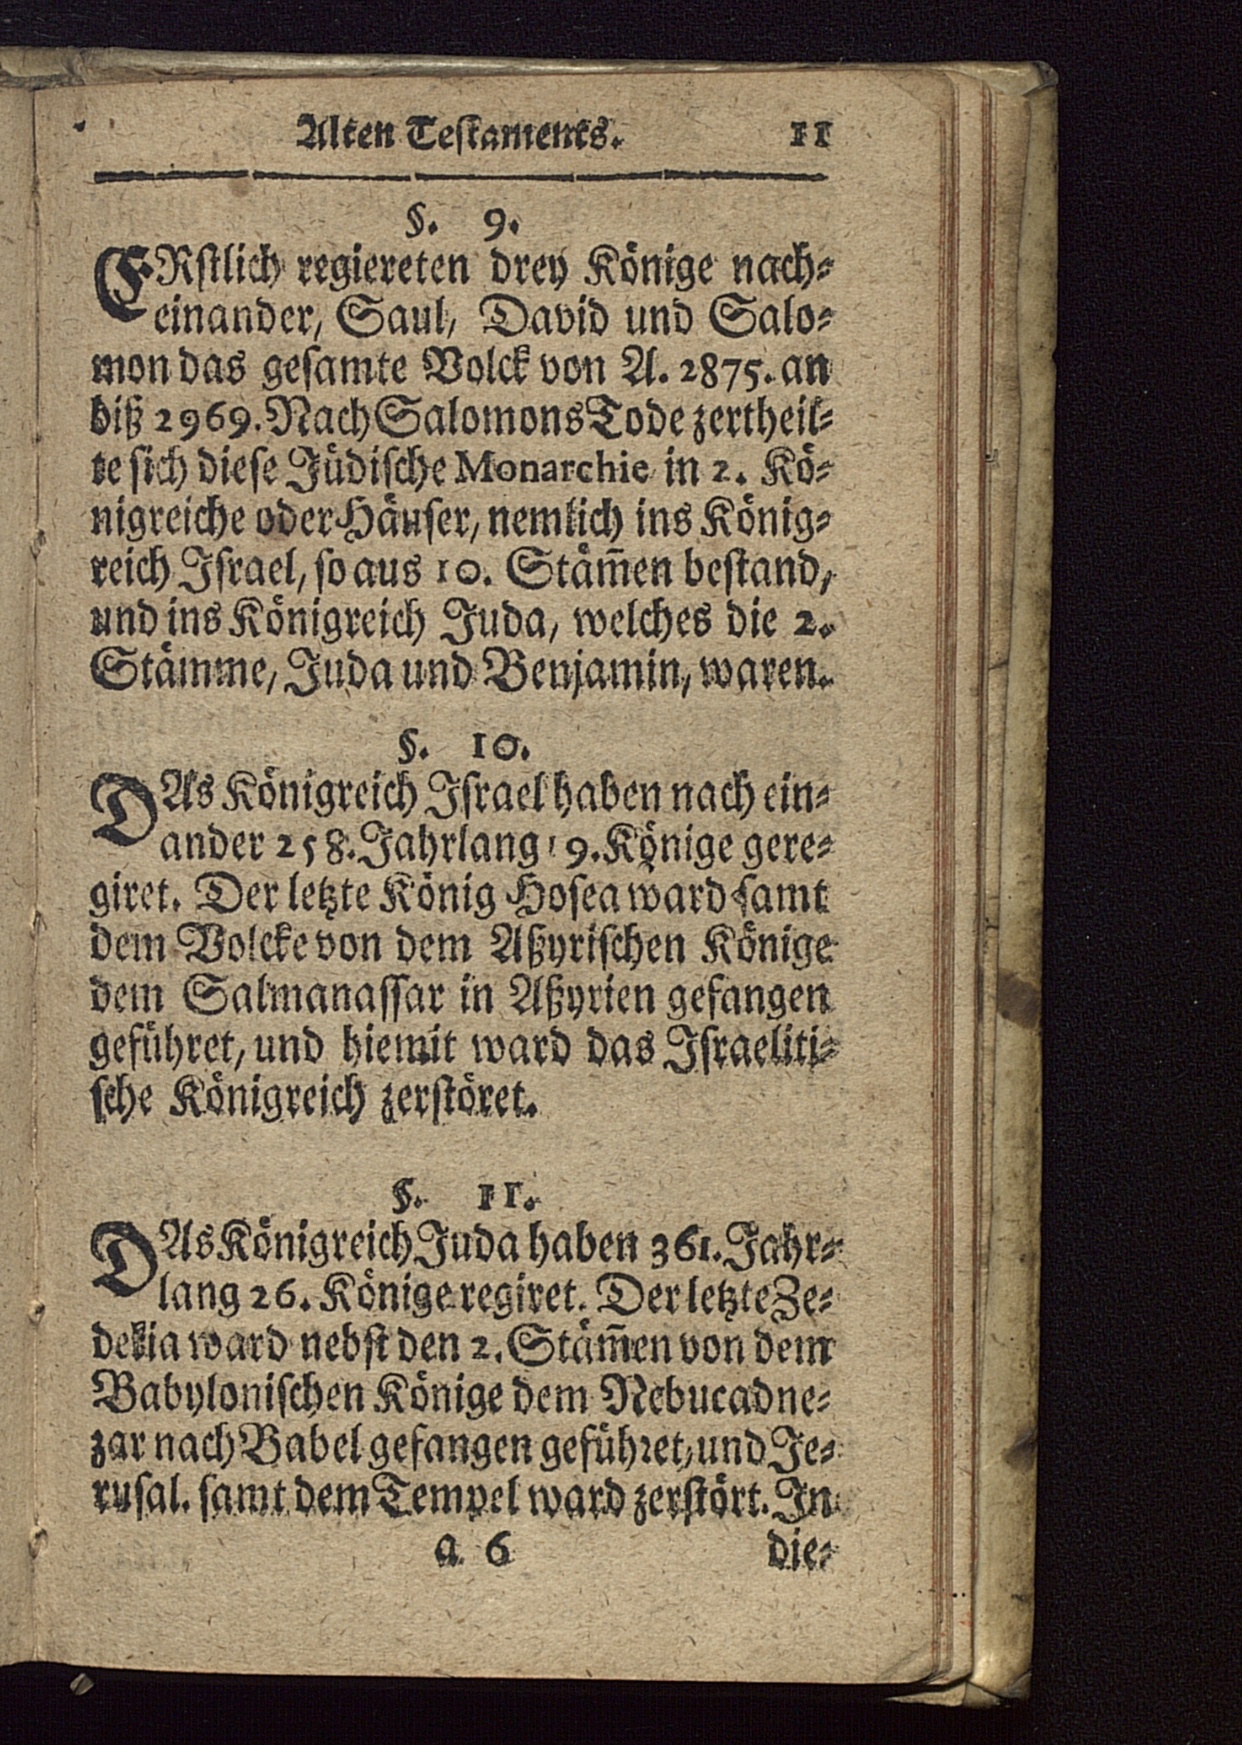 Alten Testaments. 11
§. 9.
ERstlich regiereten drey Könige nach-
einander, Saul, David und Salo-
mon das gesamte Volck von A. 2875. an
biß 2969. Nach Salomons Tode zertheil-
te sich diese Jüdische Monarchie in 2. Kö-
nigreiche oder Häuser, nemlich ins König-
reich Israel, so aus 10. Stäm̃en bestand,
und ins Königreich Juda, welches die 2.
Stämme, Juda und Benjamin, waren.
§. 10.
DAs Königreich Israel haben nach ein-
ander 258. Jahrlang 19. Könige gere-
giret. Der letzte König Hosea ward samt
dem Volcke von dem Aßyrischen Könige
dem Salmanassar in Aßyrien gefangen
geführet, und hiemit ward das Israeliti-
sche Königreich zerstöret.
§. 11.
DAs Königreich Juda haben 361. Jahr-
lang 26. Könige regiret. Der letzte Ze-
dekia ward nebst den 2. Stäm̃en von dem
Babylonischen Könige dem Nebucadne-
zar nach Babel gefangen geführet, und Je-
rusal. samt dem Tempel ward zerstört. In
a 6 die-